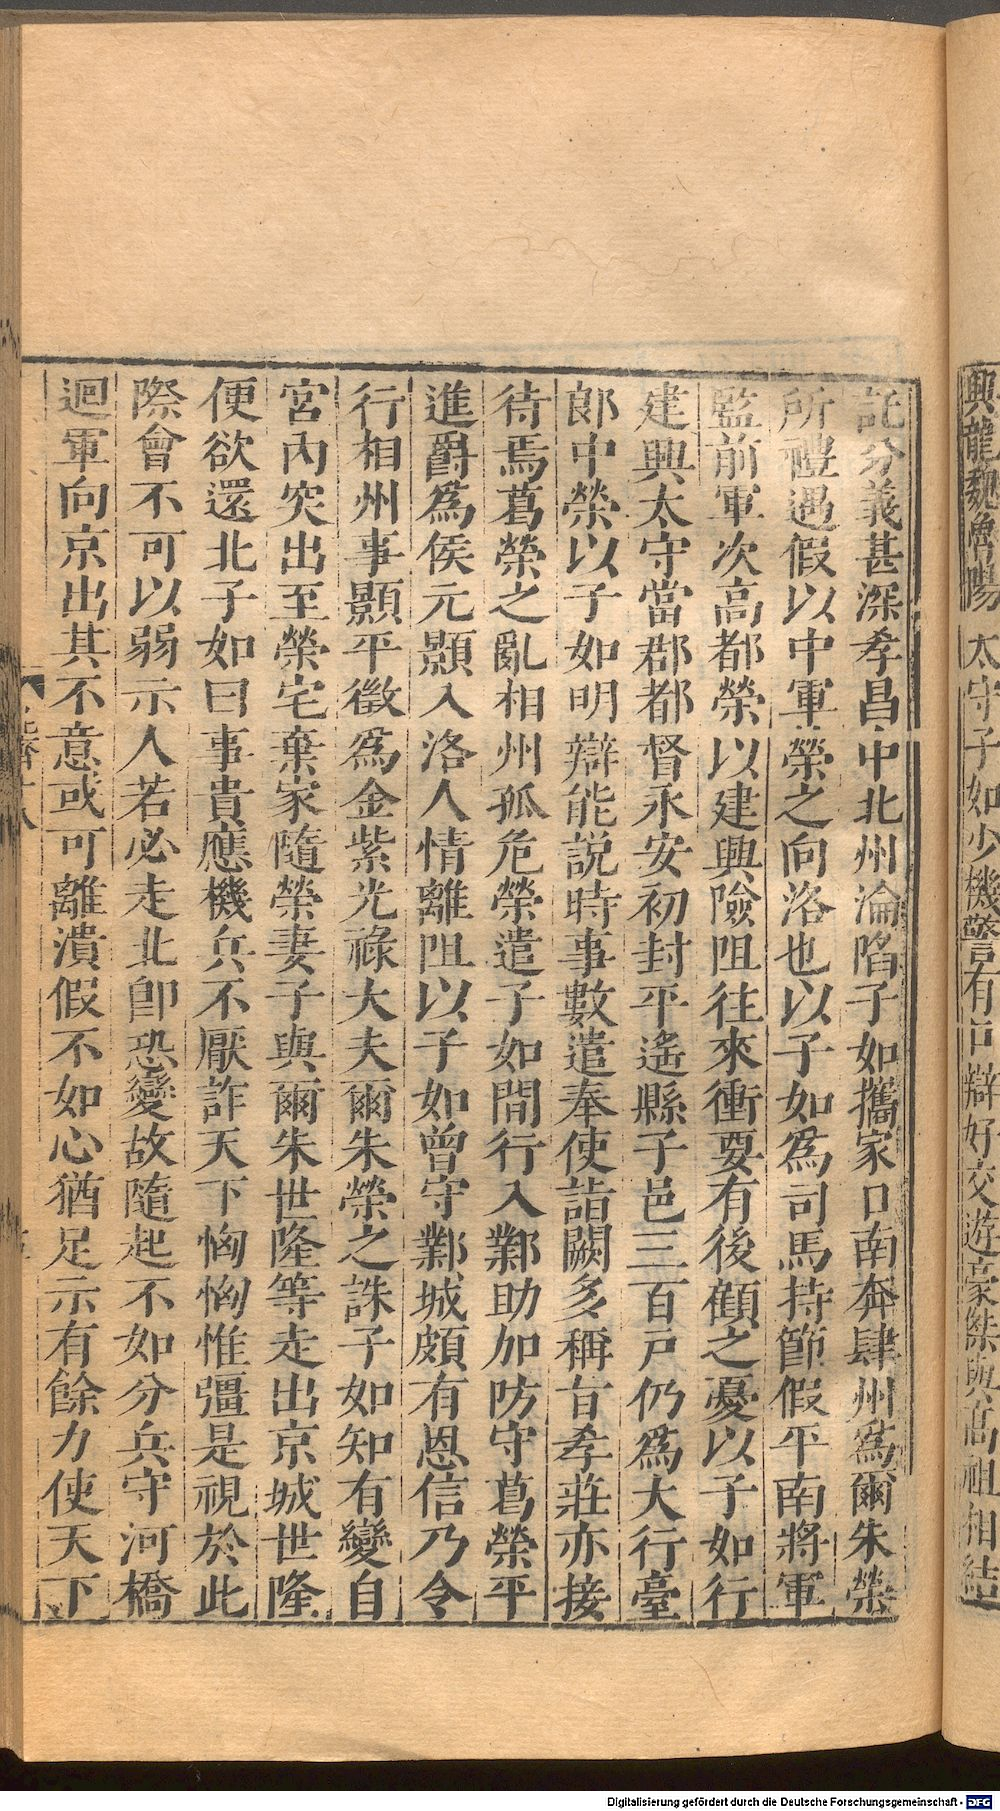 興龍魏魯陽太守子如少機警有口辯好交遊豪傑與高祖相結
託分義甚深孝昌中北州淪陷子如攜家口南奔肆州爲爾朱榮
所禮遇假以中軍榮之向洛也以子如爲司馬持節假平南將軍
監前軍次高都榮以建興險阻往來衝要有後顧之憂以子如行
建興太守當郡都督永安初封平遙縣子邑三百戶仍爲大行臺
郎中榮以子如明辯能說時事數遣奉使詣闕多稱旨孝莊亦接
待焉葛榮之亂相州孤危榮遣子如間行入鄴助加防守葛榮平
進爵爲侯元顥入洛人情離阻以子如曾守鄴城頗有恩信乃令
行相州事顥平徵爲金紫光祿大夫爾朱榮之誅子如知有變自
宮內突出至榮宅棄家隨榮妻子與爾朱世隆等走出京城世隆
便欲還北子如曰事貴應機兵不厭詐天下恟恟惟彊是視於此
際會不可以弱示人若必走北卽恐變故隨起不如分兵守河橋
迴軍向京出其不意或可離潰假不如心猶足示有餘力使天下
Digitalisierung gefördert durch die Deutsche Forschungsgemeinschaft - DFG